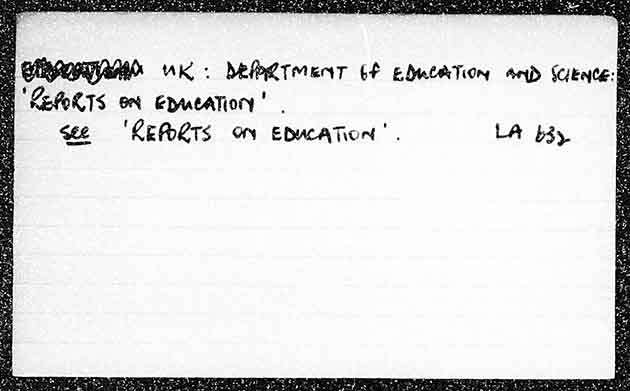 UK: DEPARTMENT of EDUCATION AND SCIENCE:
'REPORTS ON EDUCATION'.
see 'REPORTS ON EDUCATION'. LA 632